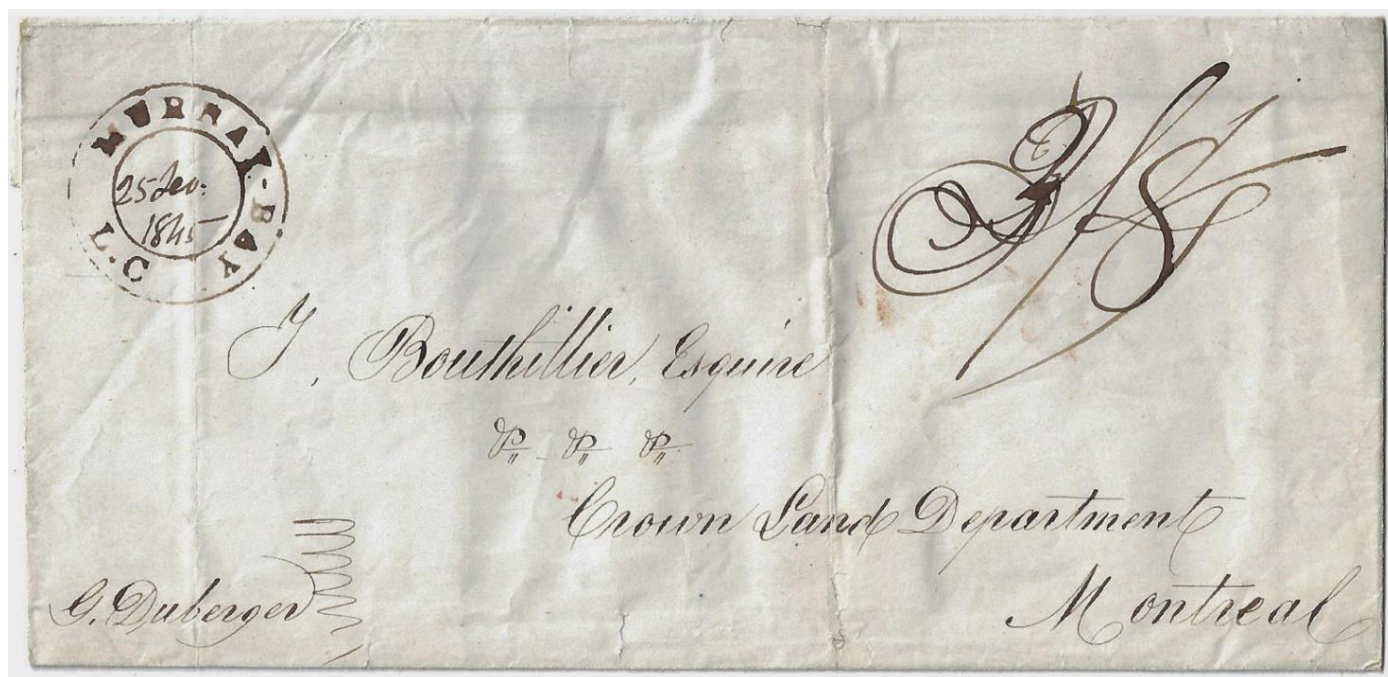 MURRAY-BAY
25
1845
L.C
T. Bouthillier, Esquire
&c &c &c
Crown Land Department
Montreal
G. Duberger